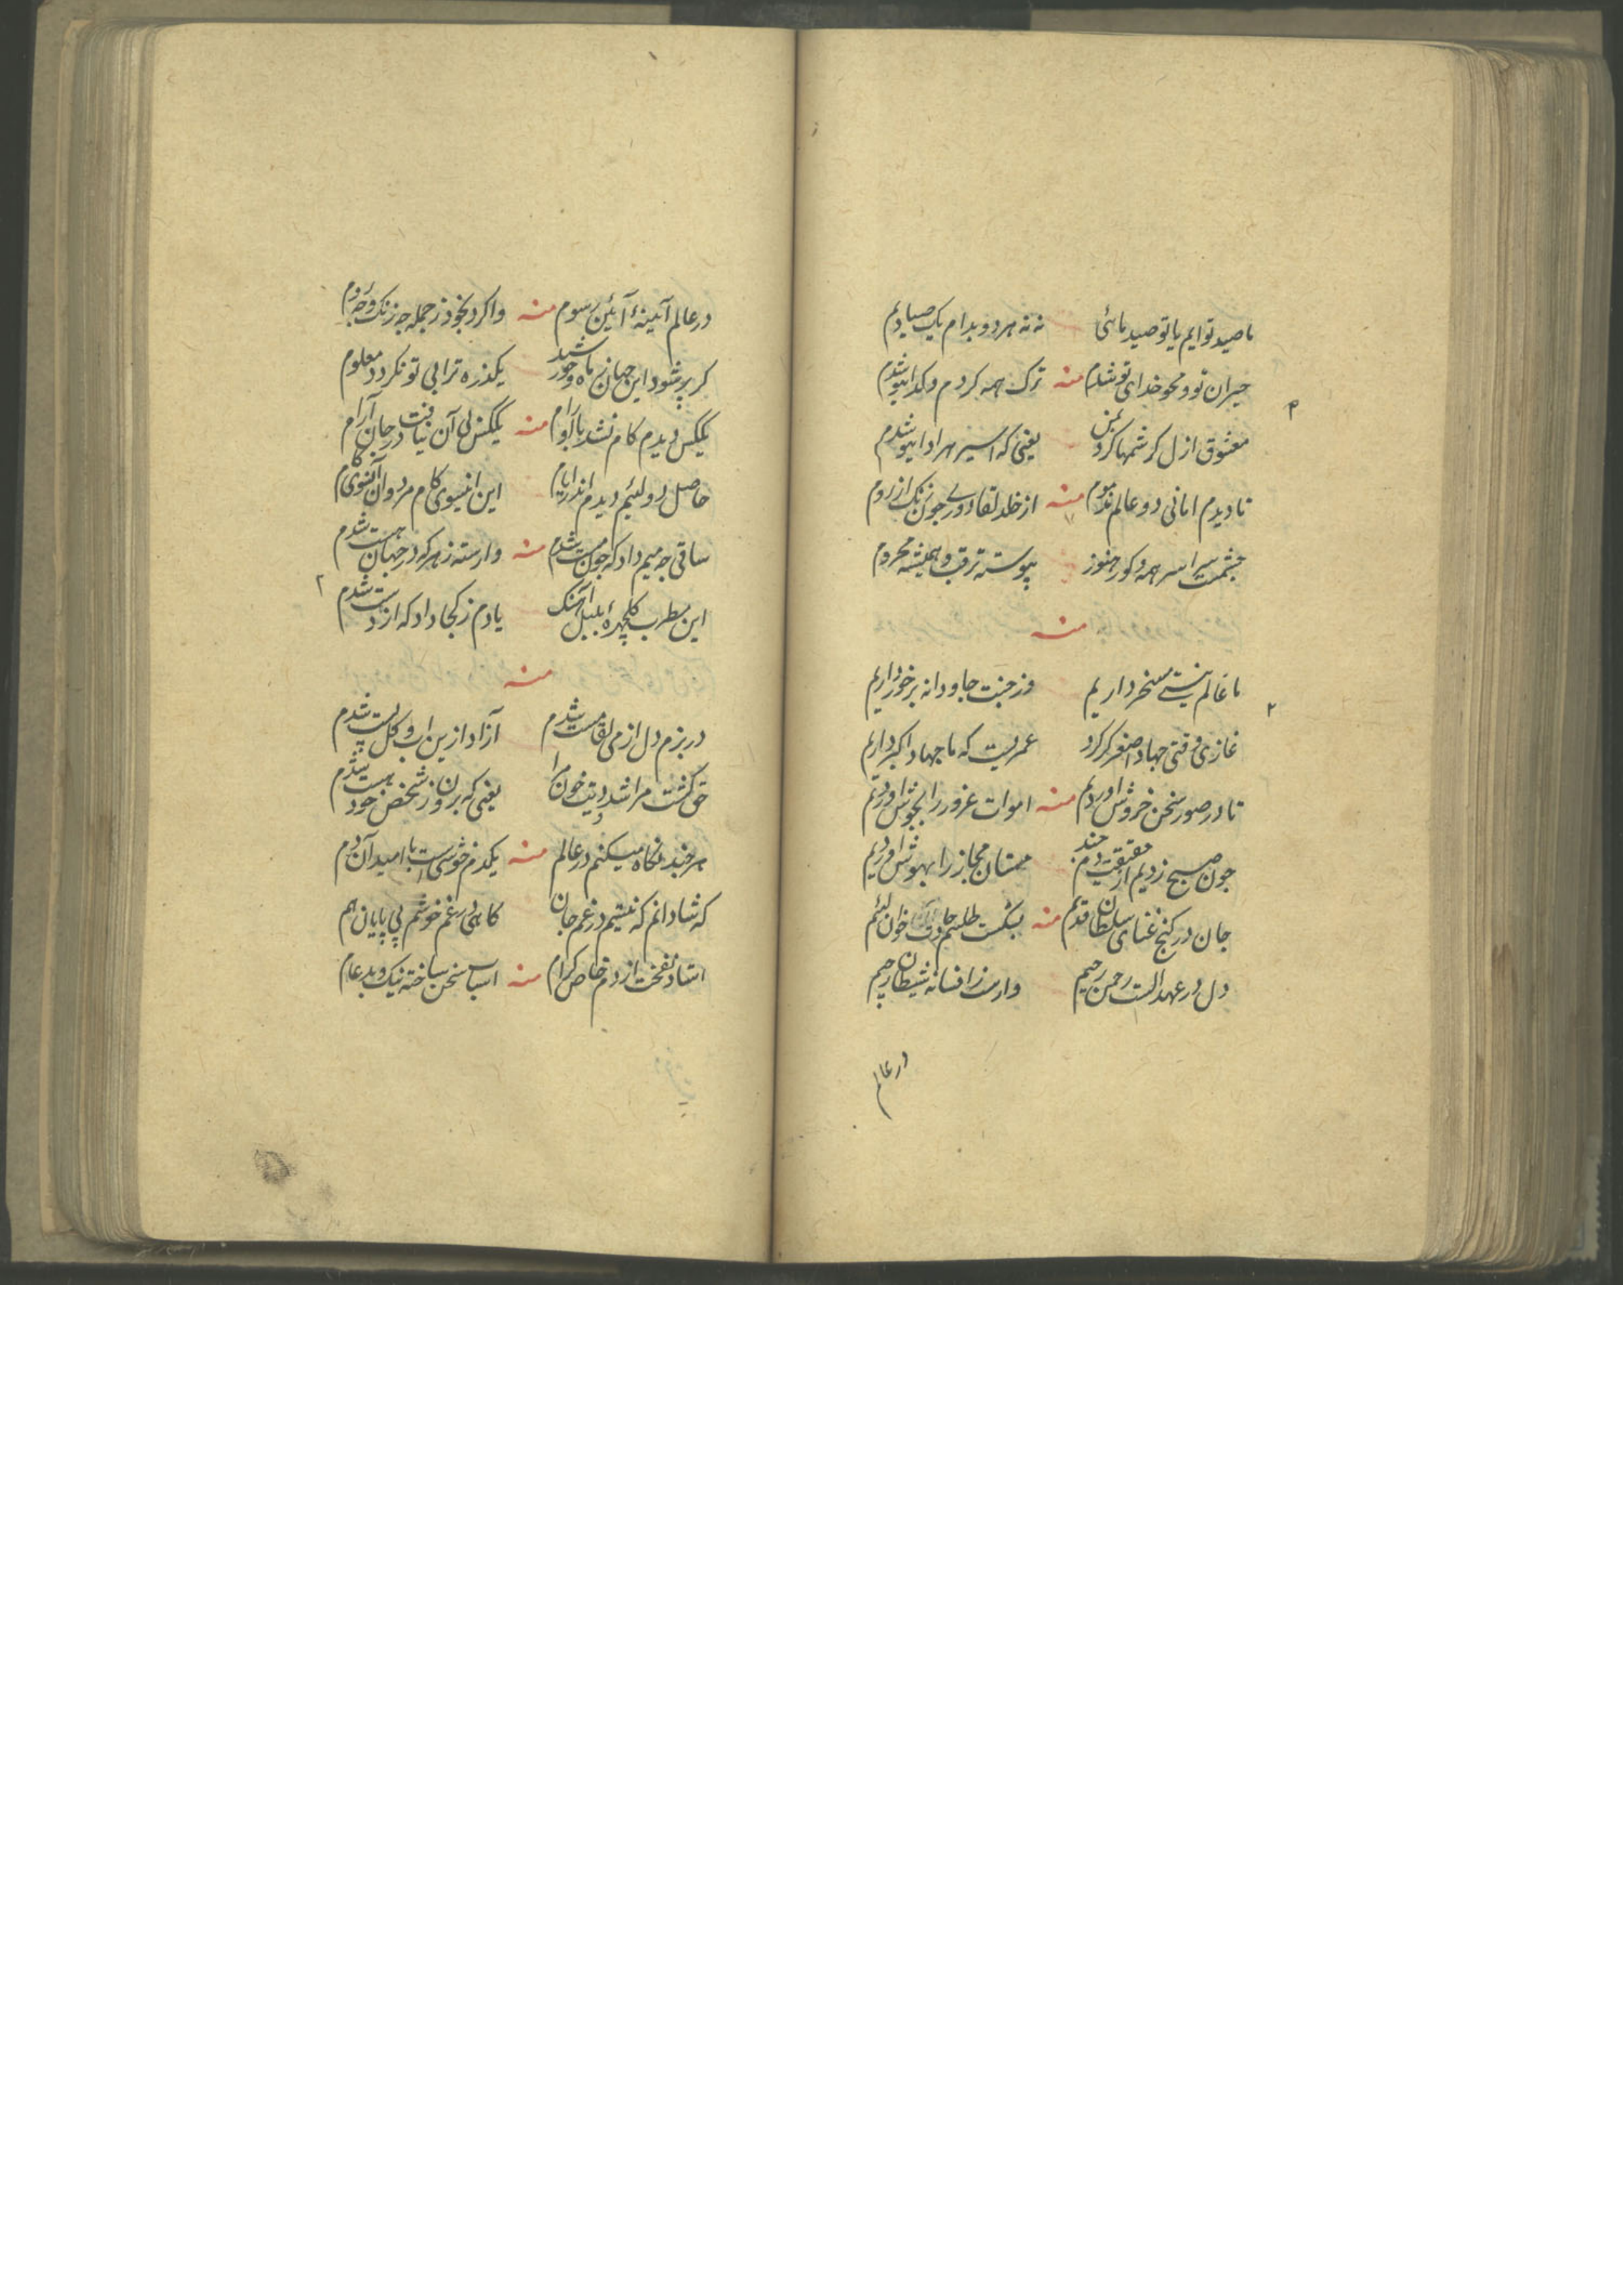 ما صید توایم یا تو صید مائی نه نه هر دو بدام یک صیادیم
حیران تو و محو خدای تو شدم منه ترک همه کردم و کدا شدم
معشوق ازل کرشمها کرد بمن یعنی که اسیر هر ادا شدم
تا دیدم امانی دو عالم مذموم منه از خلد لقا دوری چون زنک از روم
چشمت سیر همه و کور هنوز پیوسته ترقب و همیشه محروم
منه
ما عالم نیستی مسخر داریم وز جنت جاودانه برخورداریم
غازی وقتی جهاد اصغر کرد عمریست که ما جهاد اکبر داریم
تا در صور سخن خروش اوردیم منه اموات غرور را بجوش اوردیم
چون صبح زدیم از حقیقت دم چند مستان مجاز را بهوش اوردیم
جان در کنج غنای سلطان قدیم منه بشکست طلسم خوان لئیم
دل در عهد الست رحمن رحیم وارست ز افسانه شیطان رجیم
در عالم
در عالم آئینهٔ آئین رسوم منه واکرد بخود ز جمله چه زنک و چه روم
کر پر شود این جهان ز ماه و خورشید یکذره ترا بی تو نکردد معلوم
یککس دیدم کام نشد با او رام منه یککس بی آن نیافت در جان آرام
حاصل دو لئیم دیدم اندر ایام این اینسوی کام مرد و آن آنسوی کام
ساقی چه میم داد که چون مست شدم منه وارسته ز هر که در جهان هست شدم
این مطرب کلچهرهٔ بلبل آهنک یادم ز کجا داد که از دست شدم
منه
در بزم دل از می لقا مست شدم آزاد ازین اب و کل پست شدم
حق کشت مرا شد دیت خون مرا یعنی که برون ز شخص خود هست شدم
هر چند نکاه میکنم در عالم منه یکدم خوشیست با امید آن دم
که شادانم که نیستم در غم جان کاهی بی غم خوشم بی پایان هم
استاد نفخت از دم خاص کرام منه اسباب سخن ساخته نیک و بد عام